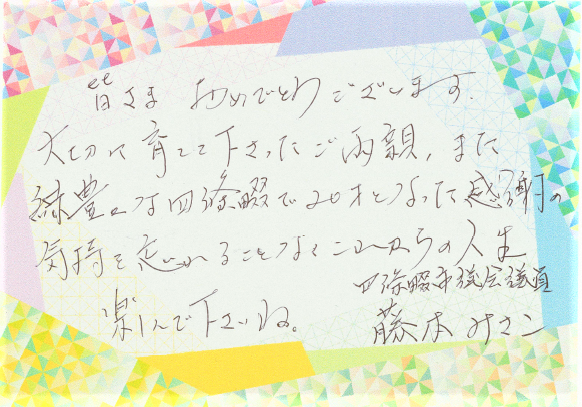 皆さま おめでとうございます。
大切に育てて下さったご両親、また
緑豊かな四條畷で20才となった感謝の
気持を忘れることなくこれからの人生
楽しんで下さいね。
四條畷市議会議員
藤本みさこ